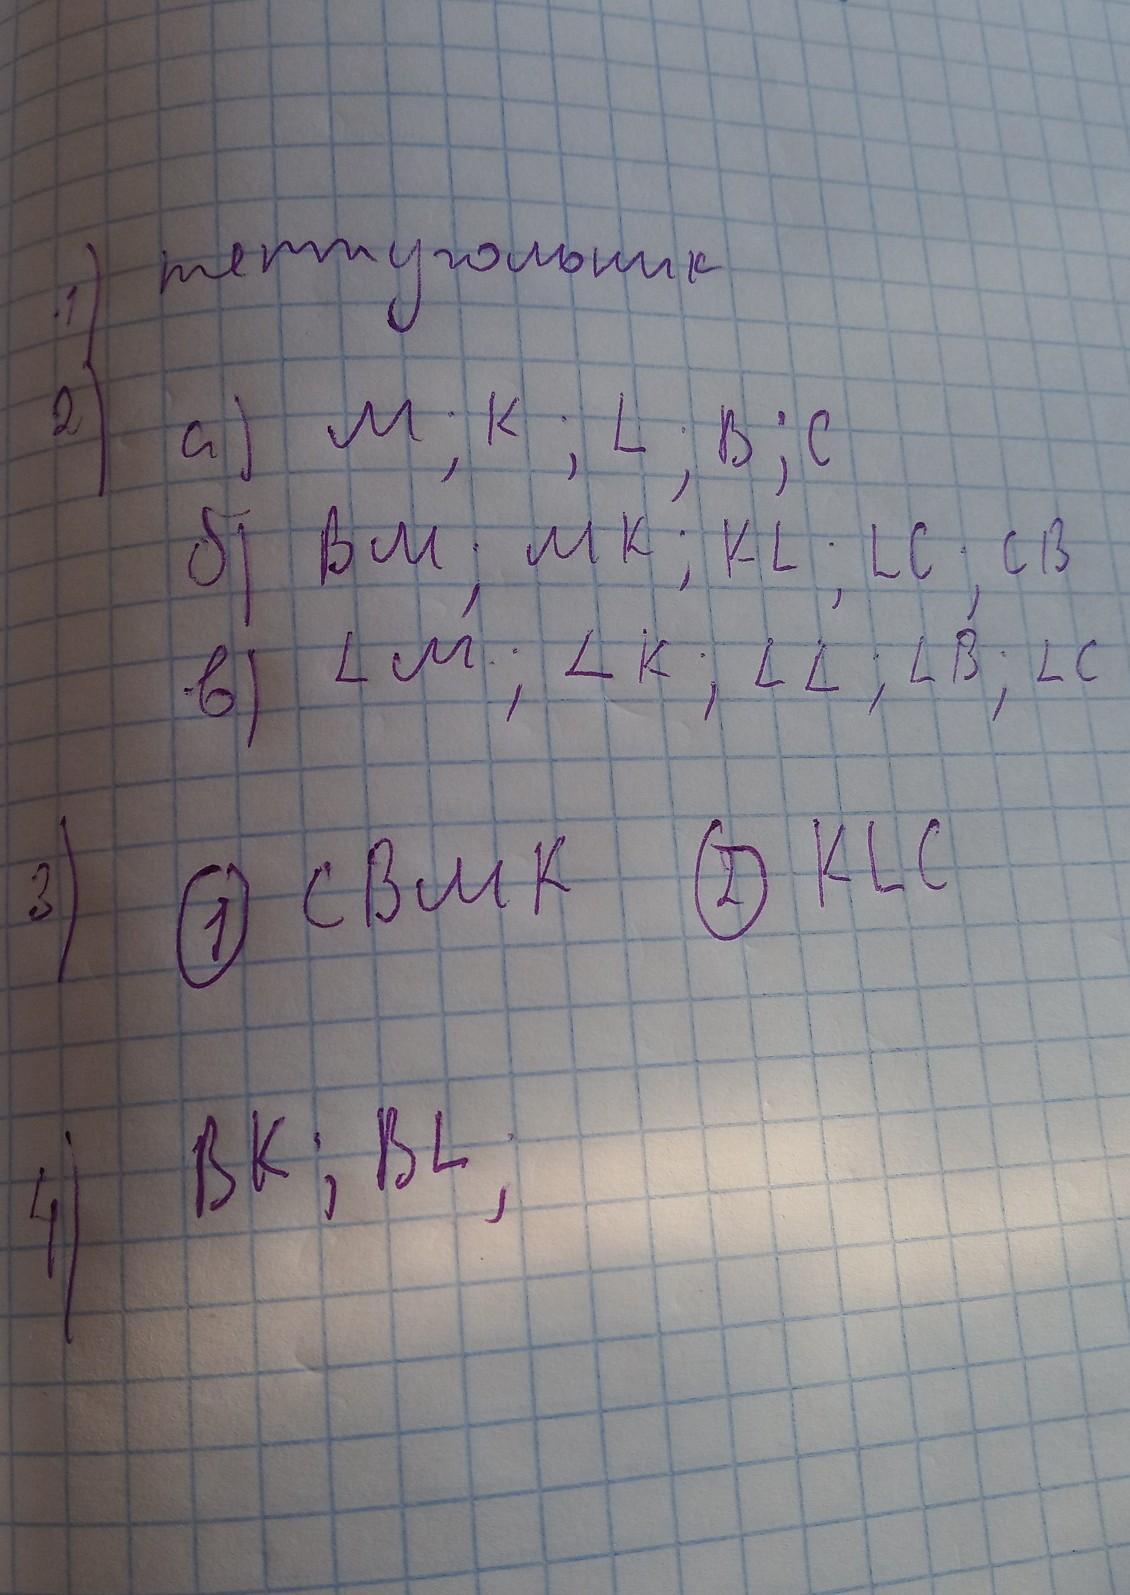 1) петиугольник
2) а) M; K; L; B; C
б) BM; MK; KL; LC; CB
в) ∠M; ∠K; ∠L; ∠B; ∠C
3) ① CBMK ② KLC
4) BK; BL;